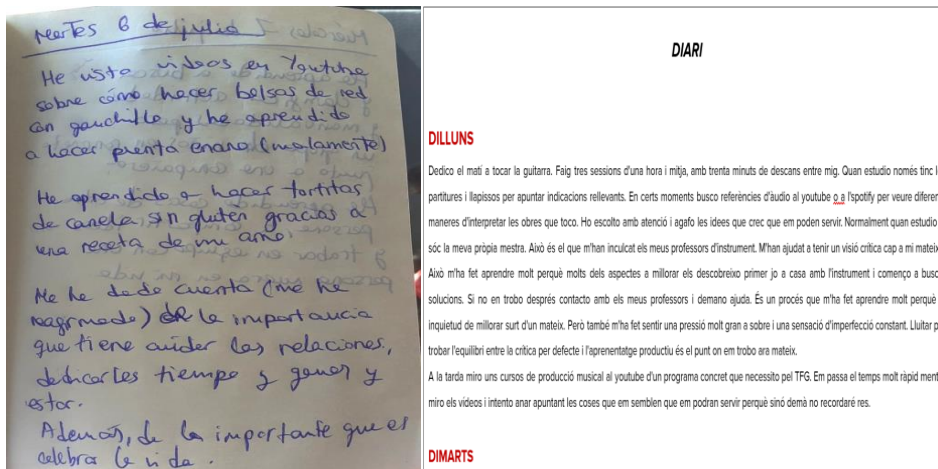 Martes 6 de julio
He visto videos en Youtube
sobre cómo hacer bolsas de red
con ganchillo y he aprendido
a hacer punto enano (malamente)
He aprendido a hacer tortitas
de canela sin gluten gracias a
una receta de mi
Me he dado cuenta (me he
reafirmado) de la importancia
que tiene cuidar las relaciones,
dedicarles tiempo y ganas y
estar.
Además, de lo importante que es
celebrar la vida.
DIARI
DILLUNS
Dedico el matí a tocar la guitarra. Faig tres sessions d'una hora i mitja, amb trenta minuts de descans entre mig. Quan estudio només tinc l
partitures i llapissos per apuntar indicacions rellevants. En certs moments busco referències d'àudio al youtube o a l'spotify per veure diferen
maneres d'interpretar les obres que toco. Ho escolto amb atenció i agafo les idees que crec que em poden servir. Normalment quan estudio
sóc la meva pròpia mestra. Això és el que m'han inculcat els meus professors d'instrument. M'han ajudat a tenir un visió crítica cap a mi mateix
Això m'ha fet aprendre molt perquè molts dels aspectes a millorar els descobreixo primer jo a casa amb l'instrument i començo a busc
solucions. Si no en trobo després contacto amb els meus professors i demano ajuda. És un procés que m'ha fet aprendre molt perquè
inquietud de millorar surt d'un mateix. Però també m'ha fet sentir una pressió molt gran a sobre i una sensació d'imperfecció constant. Lluitar p
trobar l'equilibri entre la crítica per defecte i l'aprenentatge productiu és el punt on em trobo ara mateix.
A la tarda miro uns cursos de producció musical al youtube d'un programa concret que necessito pel TFG. Em passa el temps molt ràpid ment
miro els vídeos i intento anar apuntant les coses que em semblen que em podran servir perquè sinó demà no recordaré res.
DIMARTS